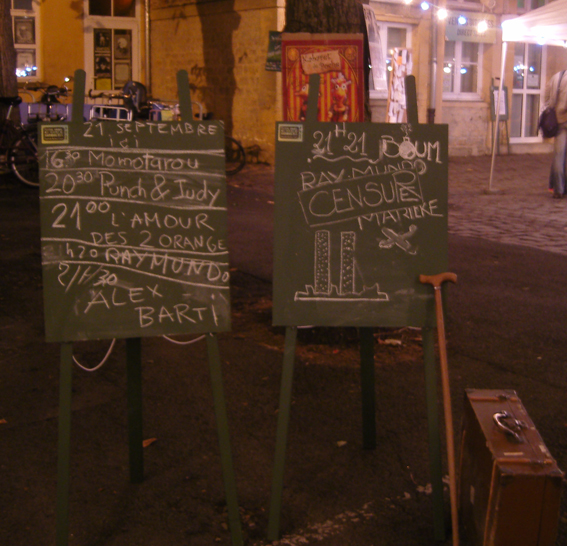 21 SEPTEMBRE
ici
16 30 Momotarou
20 30 Punch & Judy
21 00 L'AMOUR
DES 2 ORANGE
RAYMUNDO
21H30
ALEX
BARTI
21H21 BOUM
RAYMUNDO
CENSURÉ
MARIEKE